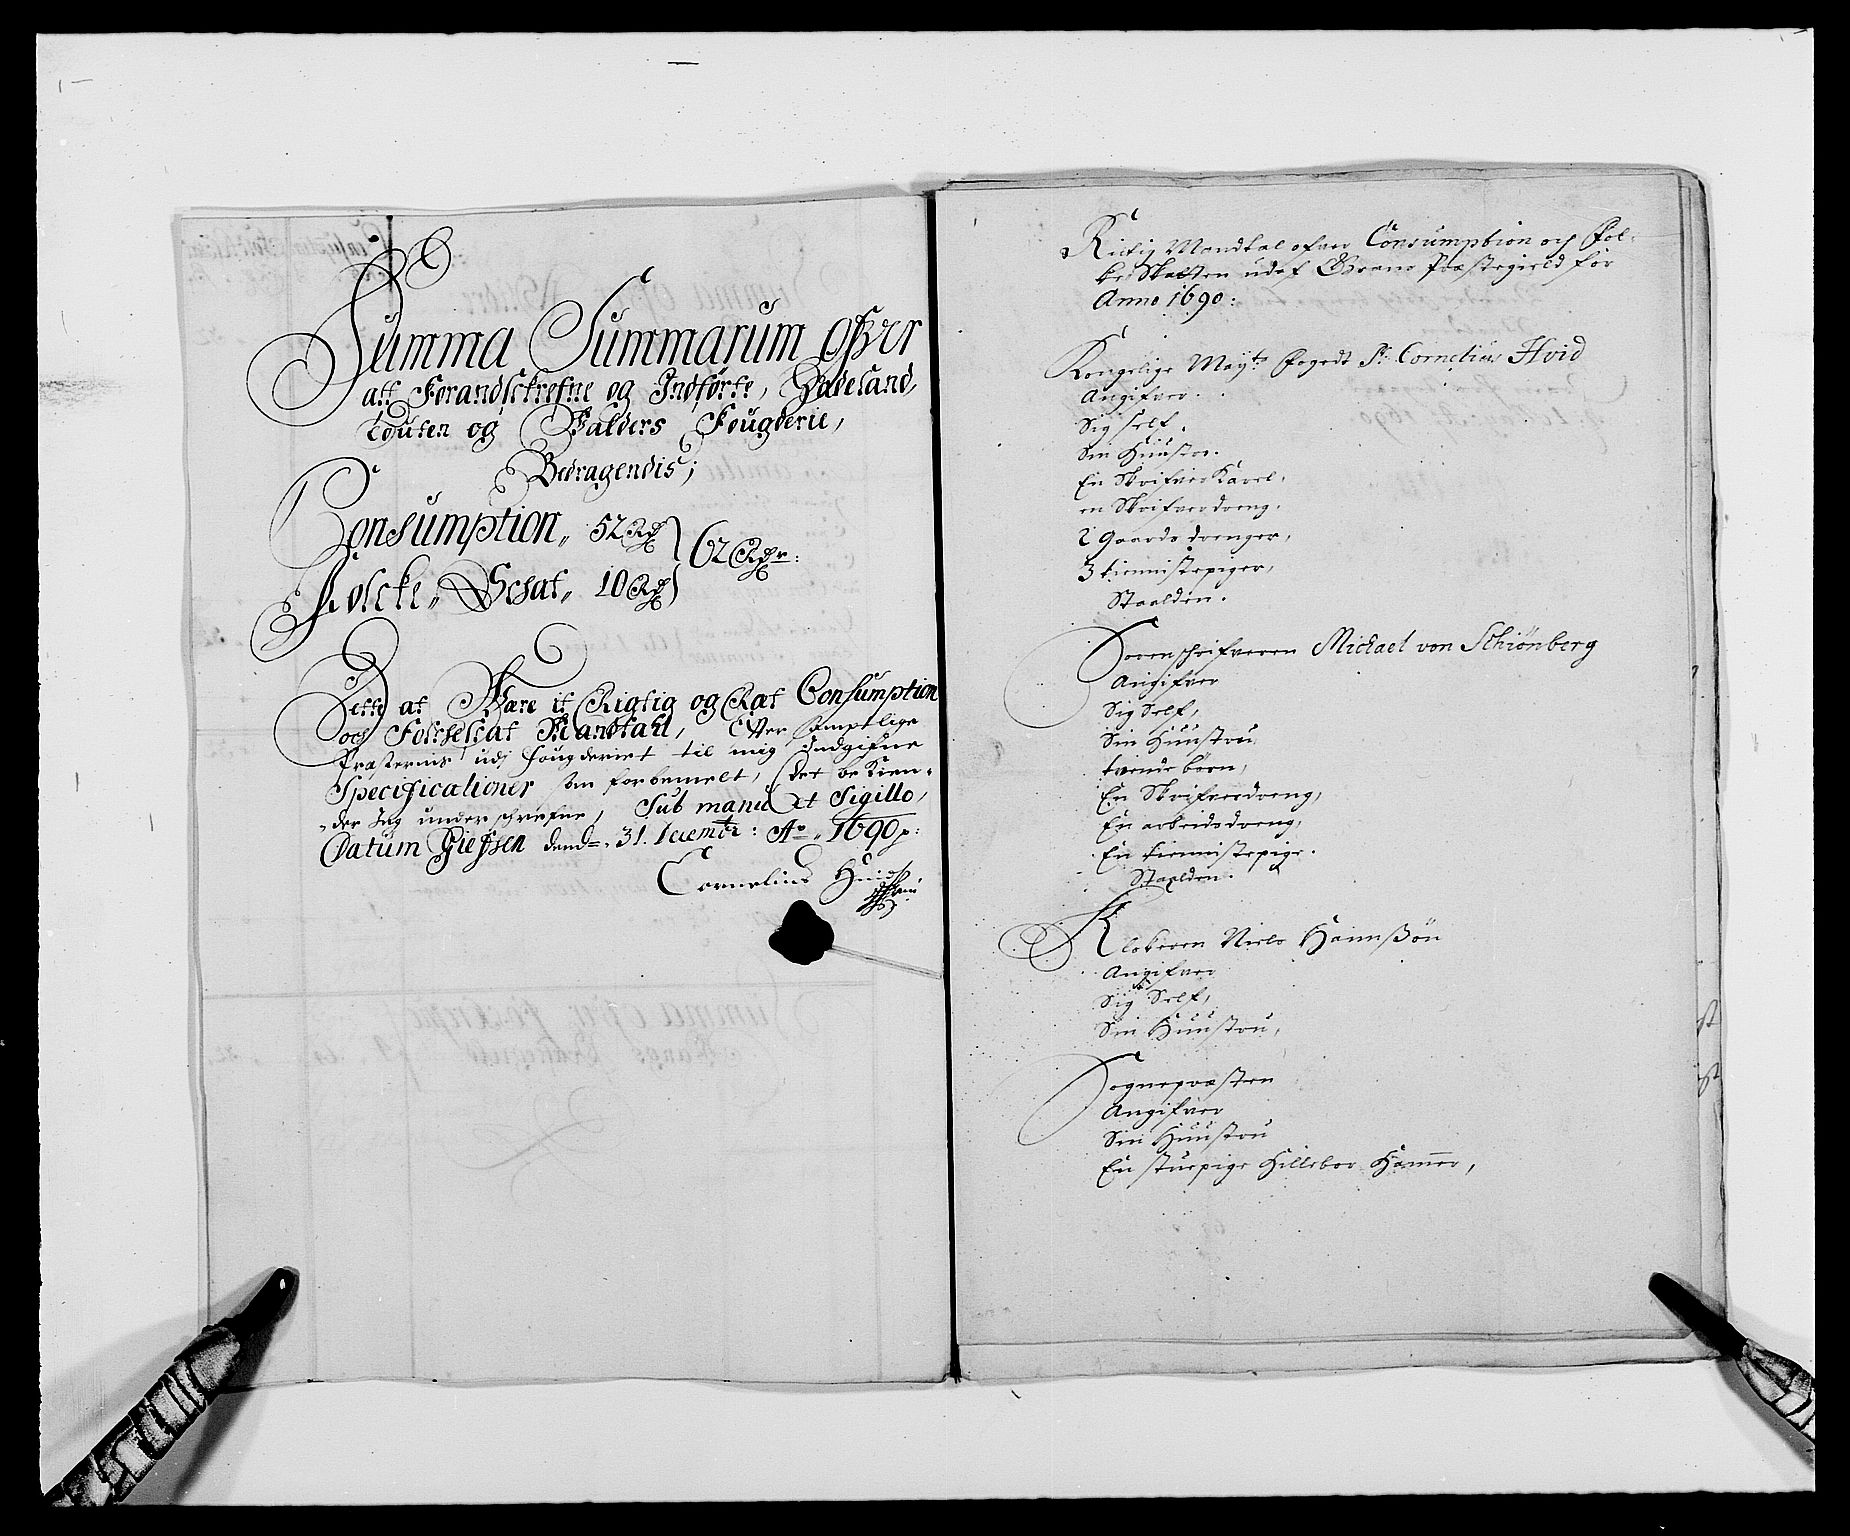 Summa Summarum ofver
alt Forandschrefne og Indførte, Hadeland,
Touten og Valders Fougderie,
Bedragendis;
Consumption„ 52 Rdr
62 Rdr:
Folcke„ Schat„ 10 Rdr
Dette at Være it Rigtig og Ræt Consumption
och Folcheschat Mandtall, Efter samptlige
Præsterne udj fougderiet til mig Indgifne
Specificationer som forbemelt, Det be Kien-
-der Jeg underschrefne, Sub manu et Sigillo,
Datum Giefsen dend 31. Decembr: Ao 1690 p:
Cornelius Huid
Rictig Mandtal ofver Consumption och Fol-
ke Skatten udaf Grans Præstegield for
Anno 1690:
Kongelige Mayts Fogedt Sr Cornelius Hvid
Angifver.
Sig self.
Sin Huustro.
En Skrifver Karel.
en Skrifverdreng.
2 Gaards drenger,
3 tienistepiger,
Stalden.
Sorenschrifveren Michael von Schiønberg
Angifver
Sig Self,
Sin Huustru
tvende børn,
En Skrifverdreng,
En arbeidsdreng,
En tienistepige.
Stalden.
Klokeren Niels Hannßøn
Angifver
Sig Self,
Sin Huustru,
Sognepræsten
Angifver
Sin Huustru
En stuepige Hillebor